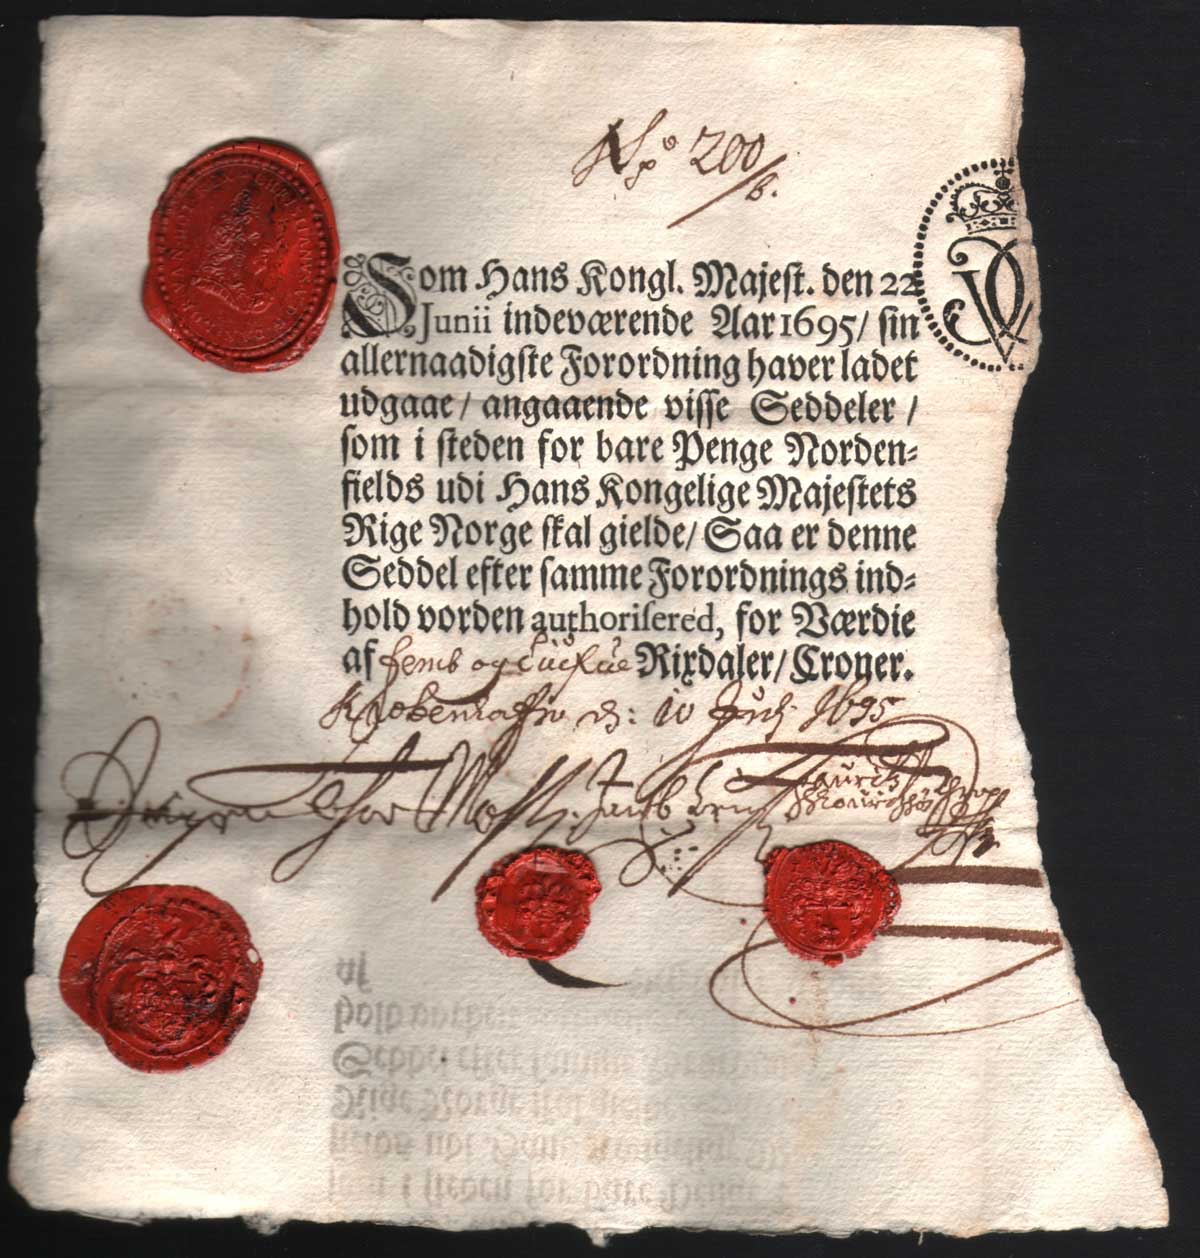 No 200
B.
Som Hans Kongl. Majest. den 22
Junii indeværende Aar 1695/ sin
allernaadigste Forordning haver ladet
udgaae/ angaaende visse Seddeler/
som i steden for bare Penge Norden-
fields udi Hans Kongelige Majestets
Rige Norge skal gielde/ Saa er denne
Seddel efter samme Forordnings ind-
hold vorden authorisered, for Værdie
af femb og tiuffue Rixdaler/ Croner.
Kiøbenhaffn d: 10 July 1695